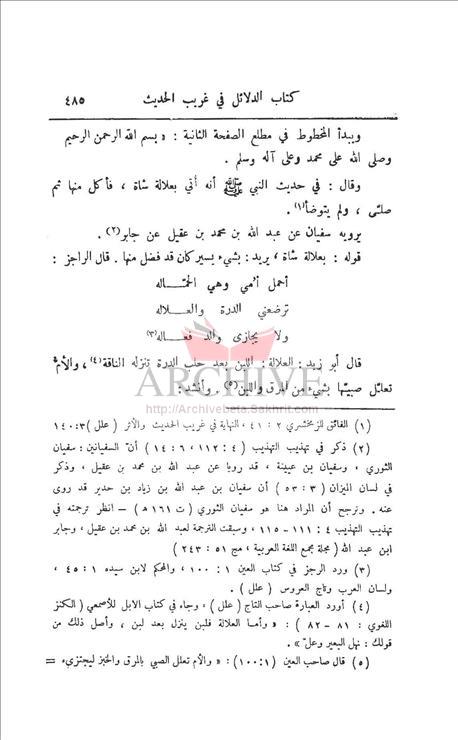 كتاب الدلائل في غريب الحديث ٤٨٥
ويبدأ المخطوط في مطلع الصفحة الثانية : « بسم الله الرحمن الرحيم
وصلى الله على محمد وعلى آله وسلم .
وقال : في حديث النبي ﷺ أنه أتي بعلالة شاة ، فأكل منها ثم
صلتى ، ولم يتوضأ(١) .
يرويه سفيان عن عبد الله بن محمد بن عقيل عن جابر(٢) .
قوله : بعلالة شاة ، يريد : بشيء يسير كان قد فضل منها . قال الراجز :
أحمل أمي وهي الحمّـالـه
ترضعني الدرة والعـلاله
ولا يجازى والد فعـاله(٣)
قال أبو زيد : العلالة : اللبن بعد حلب الدرة تنزله الناقة(٤) ، والأم
تعلل صبيّها بشيء من المرق واللبن(٥) . وأنشد :
ARCHIVE
http://Archivebeta.Sakhrit.com
(١) الفائق للزمخشري ٢ : ٤١ ، النهاية في غريب الحديث والأثر ( علل ) ٣:١٤٠
(٢) ذكر في تهذيب التهذيب ( ٤ : ١١٢ ، ٦ : ١٤ ) أن السفيانين : سفيان
الثوري ، وسفيان بن عيينة ، قد رويا عن عبد الله بن محمد بن عقيل ، وذكر
في لسان الميزان ( ٣ : ٥٣ ) أن سفيان بن عبد الله بن زياد بن حدير قد روى
عنه . ونرجح أن المراد هنا هو سفيان الثوري ( ت ١٦١ هـ ) – انظر ترجمته في
تهذيب التهذيب ٤ : ١١١ – ١١٥ ، وسبقت الترجمة لعبد الله بن محمد بن عقيل ، وجابر
ابن عبد الله ( مجلة مجمع اللغة العربية ، مج ٥١ : ٢٤٣ )
(٣) ورد الرجز في كتاب العين ١ : ١٠٠ ، والمحكم لابن سيده ١ : ٤٥ ،
ولسان العرب وتاج العروس ( علل ) .
(٤) أورد العبارة صاحب التاج ( علل ) ، وجاء في كتاب الابل للأصمعي ( الكنز
اللغوي : ٨١ – ٨٢ ) : « وأما العلالة فلبن ينزل بعد لبن ، وأصل ذلك من
قولك : نهل البعير وعلّ » .
(٥) قال صاحب العين ( ١:١٠٠ ) : « والأم تعلل الصبي بالمرق والخبز ليجتزىء =